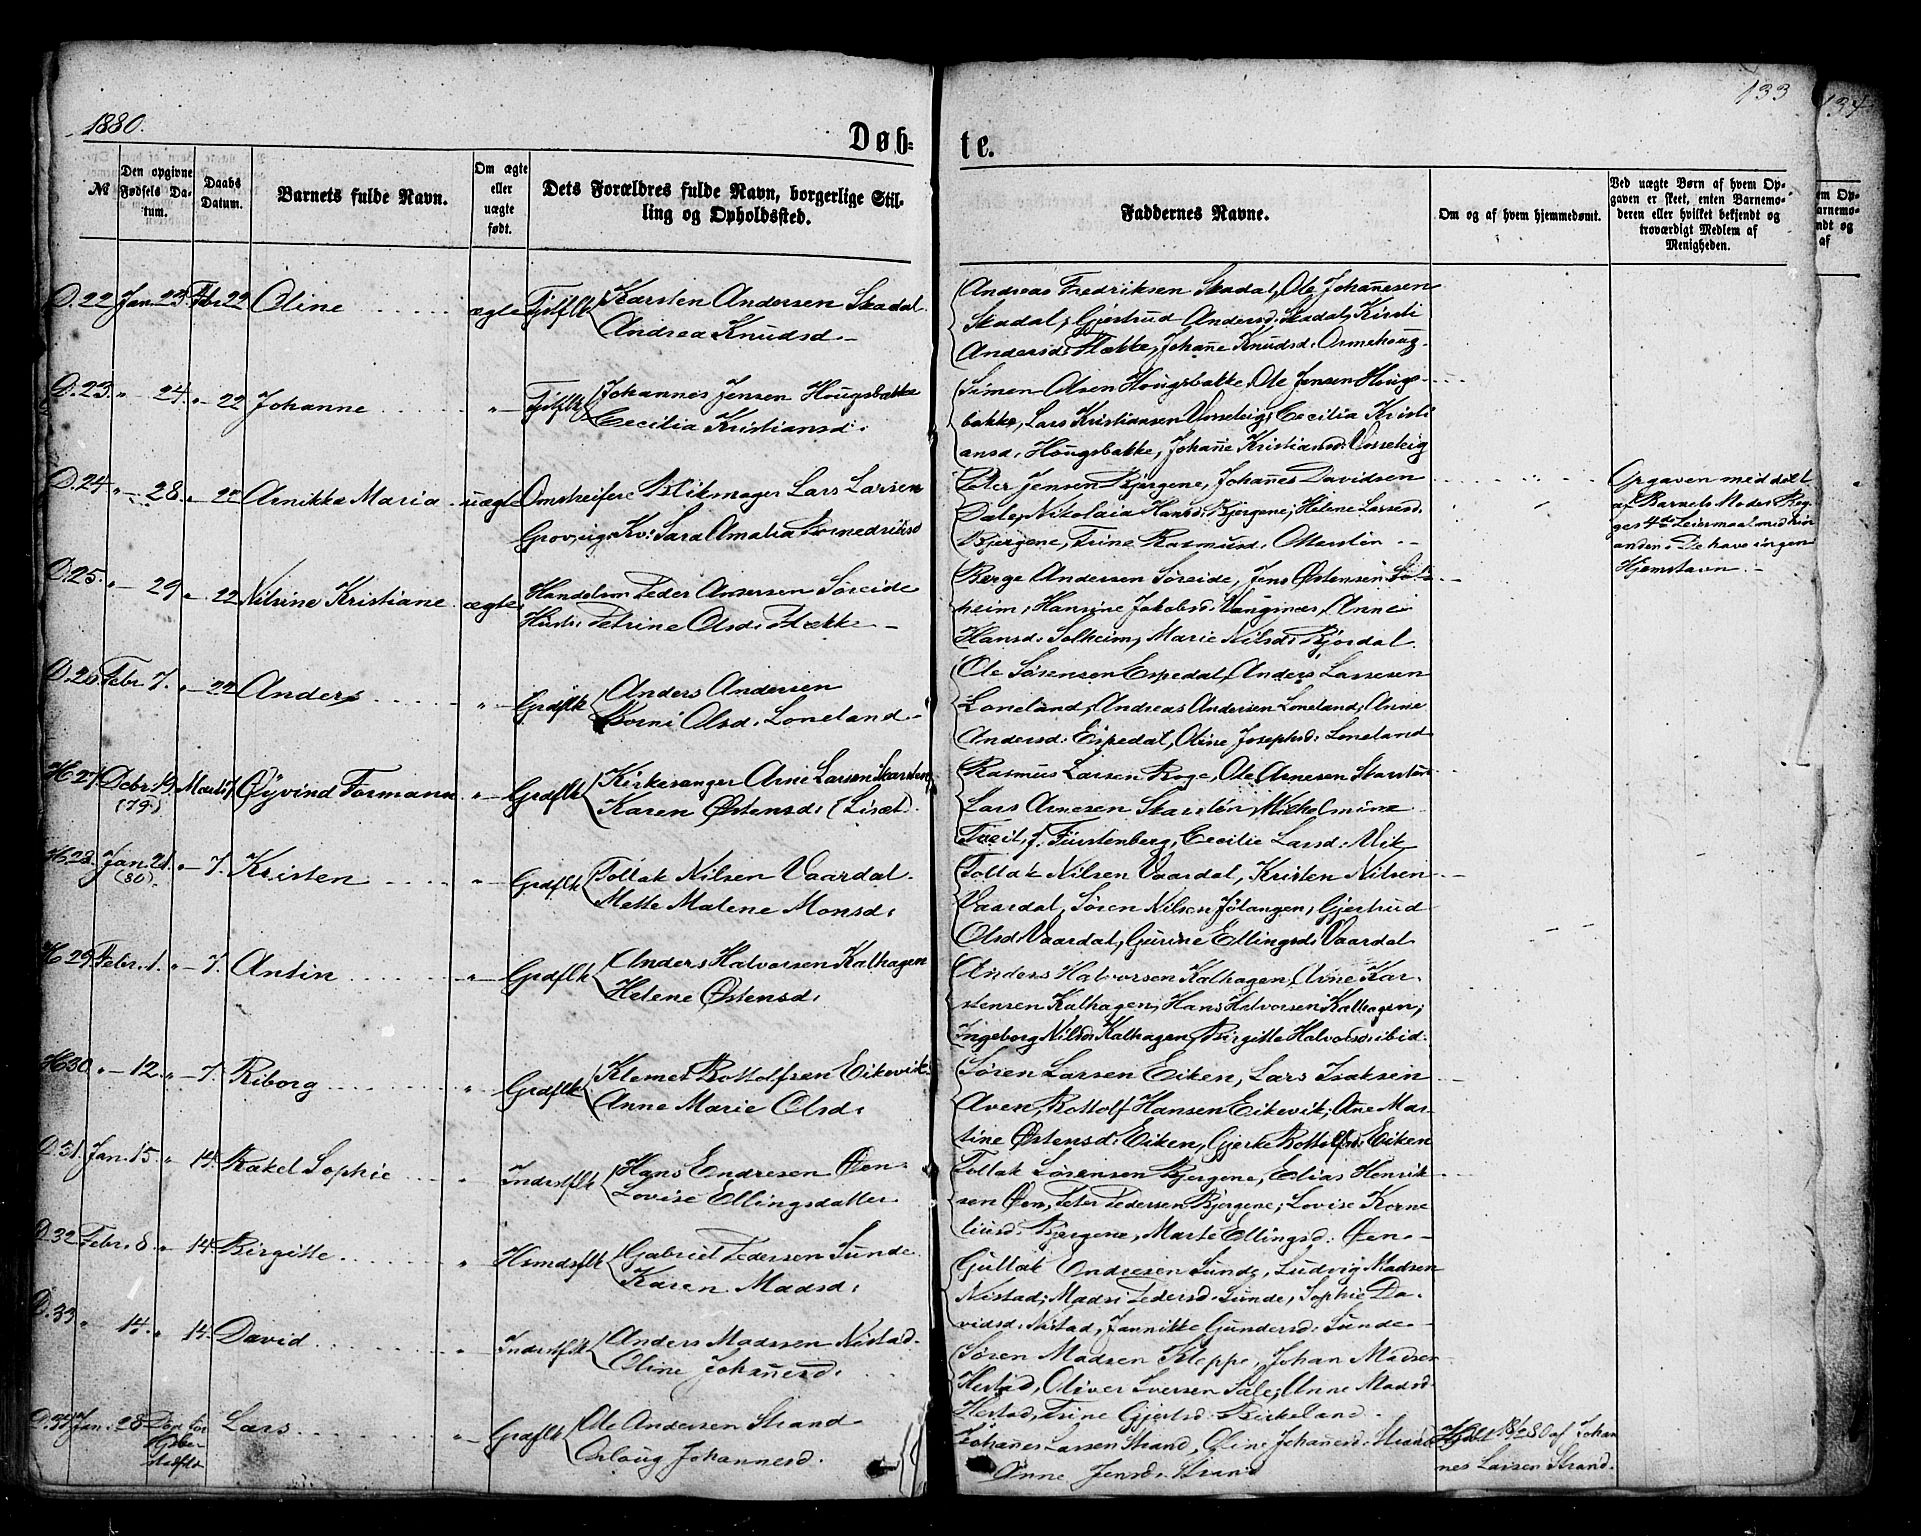 1880.
133
134
Døb-
te.
№
Den opgivne Fødsels Datum.
Daabs Datum.
Barnets fulde Navn.
Om ægte eller uægte født.
Dets Forældres fulde Navn, borgerlige Stilling og Opholdssted.
Faddernes Navne.
Om og af hvem hjemmedøbt.
Ved uægte Børn af hvem Opgaven er skeet, enten Barnemoderen eller hvilket bekjendt og troværdigt Medlem af Menigheden.
D. 22 Jan. 23 Fbr 22 Oline ægte
Karsten Andersen Skadal
Andrea Knudsd.
Andreas Fredriksen Skadal, Ole Johanesen
Skadal, Gjertrud Andersd. Skadal, Kirsti
Andersd. Flække, Johane Knudsd. Ormehoug
D. 23 " 24 " 22 Johanne "
Johannes Jensen Hougsbakke
Cecilia Kristiansd.
Simon Olsen Hougsbakke, Ole Jensen Hougs-
bakke, Lars Kristiansen Vosseteig, Cecilia Kristi
ansd. Hougsbakke, Johane Kristiansd. Vosseteig
D. 24 " 28 " 22 Arnikka Maria uægte
Omstreifere Blikmager Lars Larsen
Grov, ugKv: Sara Amalia
Peter Jensen Bjergene, Johanes Davidsen
Dale, Nikolaia Hansd. Bjergene, Helene Larsd.
Bjergene, Trine Rasmusd. Otterstøn
Opgaven meddelt
af Barnets Moder. Beg-
ges 4de Leiermaal med hin
anden. De have ingen
Hjemstavn.
D. 25 " 29 " 22 Nilsine Kristiane ægte
Handelsm Peder Andersen Søreide
Hustr. Petrine Olsd. Flække
Berge Andersen Søreide, Jens Østensen Sol-
heim, Hansine Jakobsd. Vangsnæs, Anne
Hansd. Solheim, Marie Nilsd. Bjordal
D. 26 Febr 7. " 22 Anders " Grdflk
Anders Andersen
Borni Olsd. Loneland
Ole Sørensen Espedal, Anders Lassesen
Loneland, Andreas Andersen Loneland, Anne
Andersd. Espedal, Oline Josephsd. Loneland
H 27 Debr 19. Marts 7 Øyvind Formann " Grdflk
(79)
Kirkesanger Arne Larsen Skarsten
Karen Østensd. (Liset)
Rasmus Larsen Roge, Ole Arnesen Skarsten
Lars Arnesen Skarstén, Wilhelmine
Tveit, f. Fürstenberg, Cecilie Larsd. Mik
H. 28. Jan. 21. " 7. Kristen " Grdflk
(80)
Tollak Nilsen Vaardal
Mette Malene Monsd.
Tollak Nilsen Vaardal, Kristen Nilsen
Vaardal, Søren Nilsen Jølangen, Gjertrud
Olsd. Vaardal, Gurine Ellingsd. Vaardal
H 29 Febr. 1. " 7. Antin " Grdflk
Anders Halvorsen Kalhagen
Helene Østensd.
Anders Halvorsen Kalhagen, Arne Kar-
stensen Kalhagen, Hans Halvorsen Kalhagen,
Ingeborg Nilsd. Kalhagen, Birgitte Halvorsd. ibid.
H 30 " 12 " 7. Riborg " Grdflk
Klemet Bottolfsen Eikevik
Anne Marie Olsd.
Søren Larsen Eiken, Lars Isaksen
Aven, Bottolf Hansen Eikevik, Ane Mar-
tine Østensd. Eiken, Gjerke Bottolfsd. Eiken
D. 31. Jan. 15. " 14. Rakel Sophie " Inderstflk
Hans Endresen Øen
Lovise Ellingsdatter
Tollak Sørensen Bjergene, Elias Henrik
sen Øen, Peter Pedersen Bjergene, Lovise Korne
liusd. Bjergene, Marte Ellingsd. Øen
D. 32 Febr. 8 " 14. Birgitte " Hsmdsflk
Gabriel Pedersen Sunde
Karen Madsd.
Gullak Andresen Sunde, Ludvig Madsen
Nistad, Madsi Pedersd. Sunde, Sophie Da-
vidsd. Nistad, Jannikke Gundersd. Sunde
D. 33 " 14. " 14. David " Inderstflk
Anders Madssen Nistad
Oline Johanesd.
Søren Madsen Kleppe, Johan Madsen
Hestad, Oliver Iversen Sale, Anne Madsd
Hestad, Trine Gjertsd. Birkeland
D. 34 Jan. 28 Lars " Grdflk
Ole Andersen Strand
Aslaug Johannesd.
Johanes Larsen Strand, Oline Johanesd. Strand
Anne Jensd. Strand
Hjdbt 18/2 80 af Johan
nes Larsen Strand.